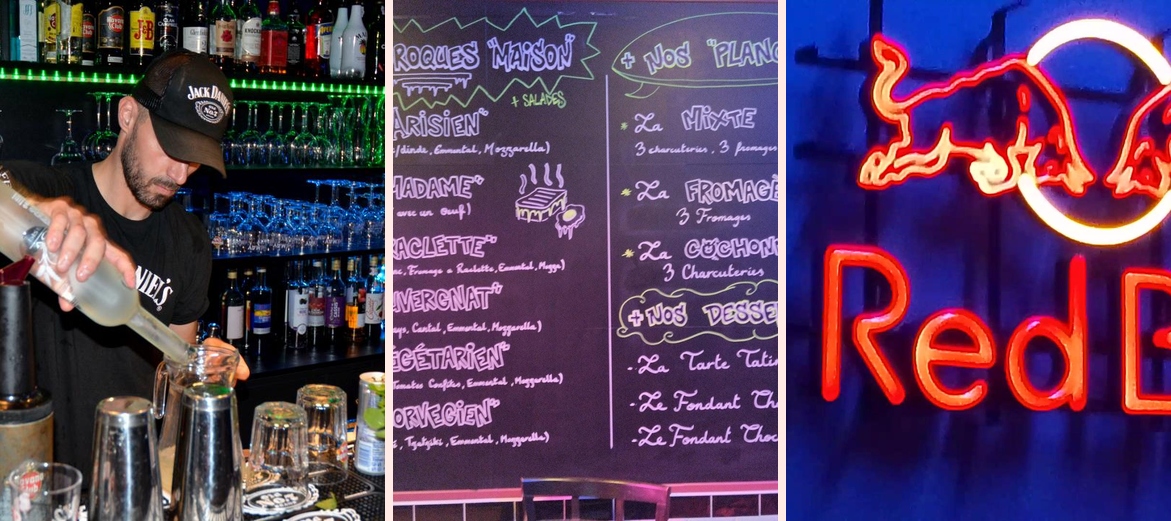 J&B
JACK DANIEL'S
No.7
NIEL'S
No.7
ROQUES "MAISON"
+ SALADES
ARISIEN"
/dinde, Emmental, Mozzarella)
MADAME"
avec un œuf)
RACLETTE"
Fromage a Raclette, Emmental, Mozza)
UVERGNAT"
ays, Cantal, Emmental, Mozzarella)
ÉGÉTARIEN"
Tomates Confites, Emmental, Mozzarella)
ORVEGIEN"
Tzatziki, Emmental, Mozzarella)
+ NOS "PLANC
* La MIXTE
3 charcuteries, 3 fromages
* La FROMAGÈ
3 Fromages
* La COCHONN
3 Charcuteries
+ NOS DESSE
- La Tarte Tatin
- Le Fondant Cho
- Le Fondant Choc
Red B